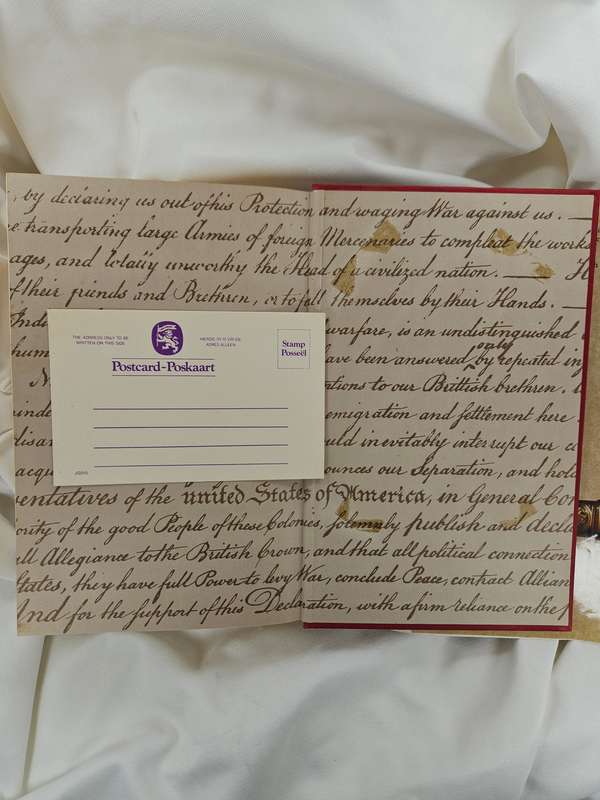 , by declaring us out of his Protection and waging War against us. —
transporting large Armies of foreign Mercenaries to compleat the works
ages, and totally unworthy the Head of a civilized nation. — H
of their friends and Brethren, or to fall themselves by their Hands. —
warfare, is an undistinguished
have been answered only by repeated in
to our Brittish brethren.
emigration and settlement here
inevitably interrupt our
our Separation, and hold
entatives of the united States of America, in General Con
ority of the good People of these Colonies, solemnly publish and decla
all Allegiance to the British Crown, and that all political connection
States, they have full Power to levy War, conclude Peace, contract Allian
And for the support of this Declaration, with a firm reliance on the p
THE ADDRESS ONLY TO BE
WRITTEN ON THIS SIDE
HIERDIE SY IS VIR DIE
ADRES ALLEEN
Stamp
Posseël
Postcard-Poskaart